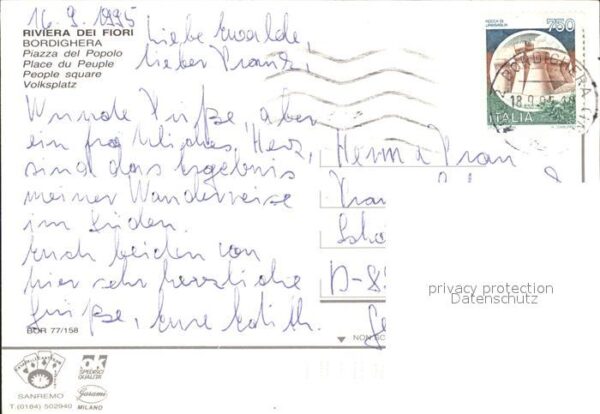 16.9.1995
RIVIERA DEI FIORI
BORDIGHERA
Piazza del Popolo
Place du Peuple
People square
Volksplatz
Liebe
Lieber Franz,
Wunde Füße, aber
ein fröhliches Herz,
sind das Ergebnis
meiner Wanderreise
im Süden.
Euch beiden von
hier sehr herzliche
Grüße, Eure Edith.
BOR 77/158
ROCCA DI URBISAGLIA
750
ITALIA
BORDIGHERA
18.9.95
Herrn
D-8
privacy protection
Datenschutz
NON SC
SANREMO
T.(0184) 502940
OK
SPEDIRCI
QUALITÀ
Garami
MILANO